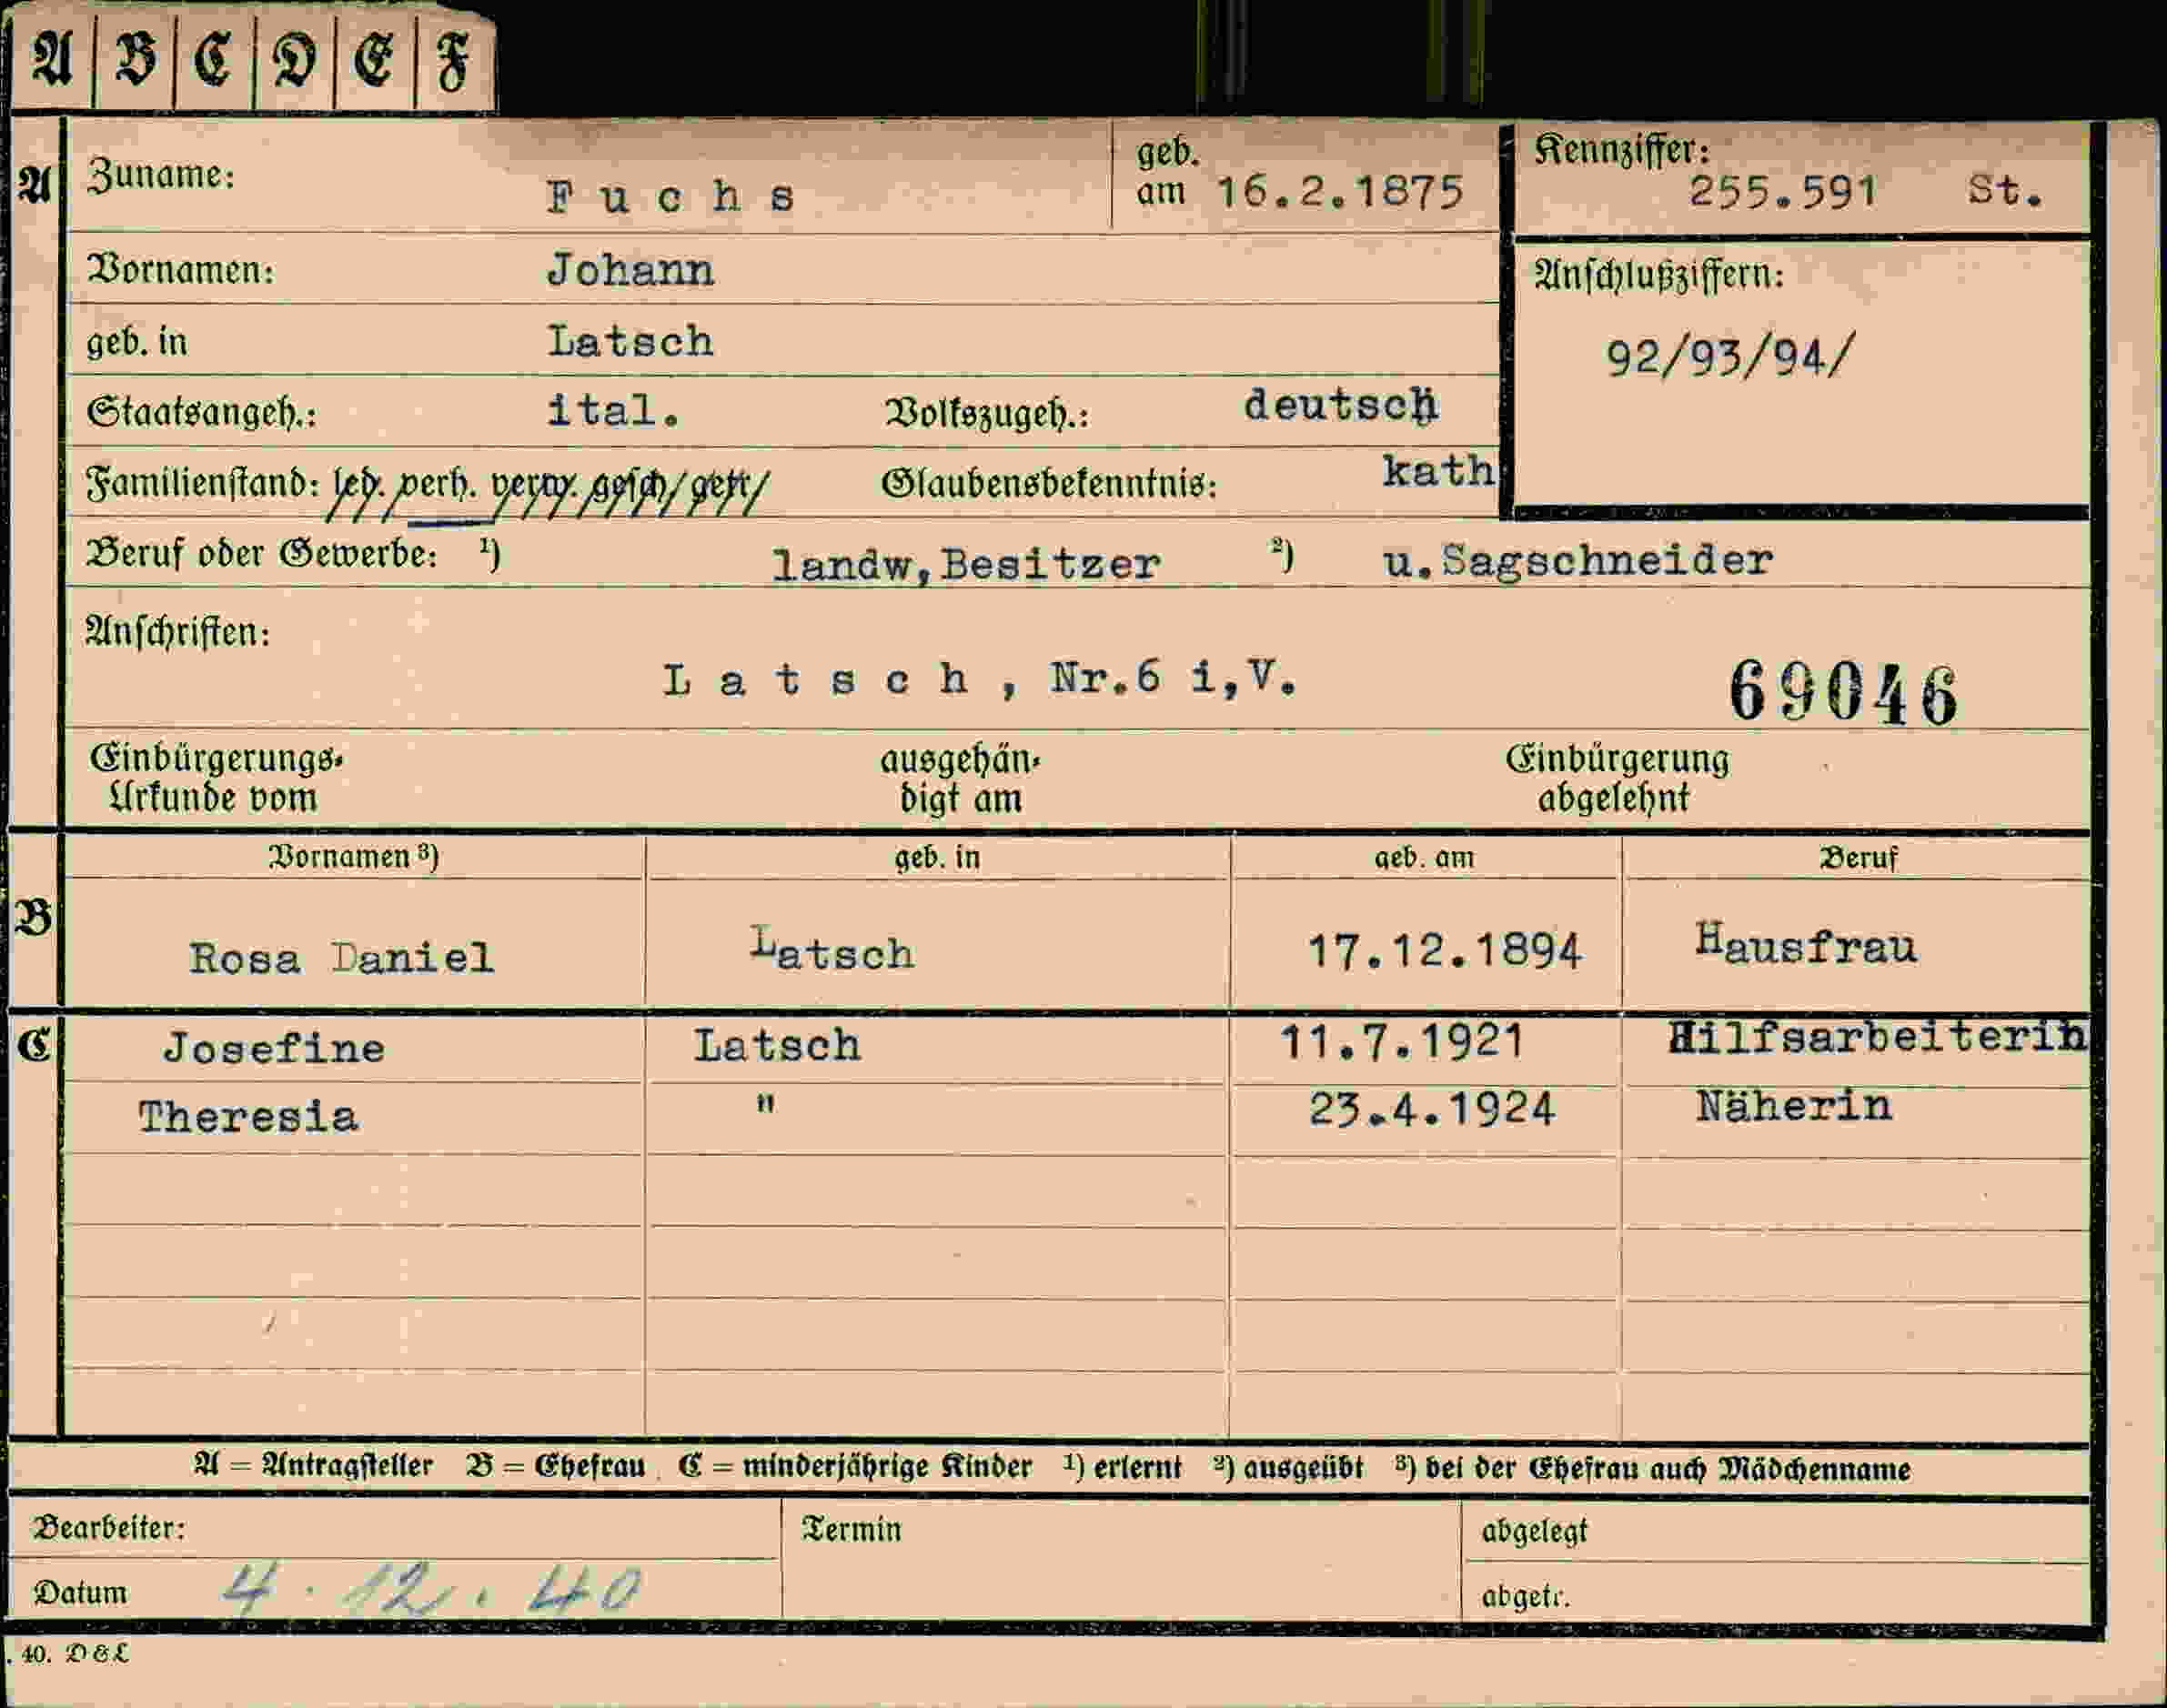 A B C D E F
A Zuname: Fuchs geb. am 16.2.1875 Kennziffer: 255.591 St.
Vornamen: Johann
geb. in Latsch
Anschlußziffern: 92/93/94/
Staatsangeh.: ital. Volkszugeh.: deutsch
Familienstand: led. verh. verw. gesch. getr. Glaubensbekenntnis: kath
Beruf oder Gewerbe: ¹) landw,Besitzer ²) u.Sagschneider
Anschriften:
Latsch, Nr.6 i,V. 69046
Einbürgerungs-Urkunde vom ausgehän-digt am Einbürgerung abgelehnt
Vornamen ³) geb. in geb. am Beruf
B Rosa Daniel Latsch 17.12.1894 Hausfrau
C Josefine Latsch 11.7.1921 Hilfsarbeiterin
Theresia " 23.4.1924 Näherin
A = Antragsteller B = Ehefrau C = minderjährige Kinder ¹) erlernt ²) ausgeübt ³) bei der Ehefrau auch Mädchenname
Bearbeiter: Termin abgelegt
Datum 4.12.40 abgetr.
. 40. D & L